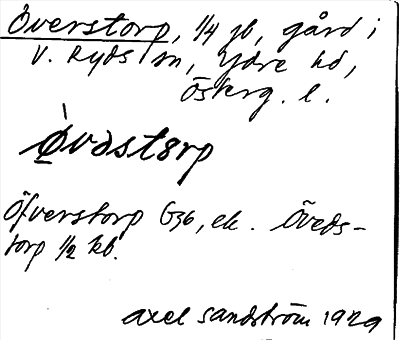 Överstorp, 1/4 jb, gård i
V. Ryds sn, Ydre hd,
Östrg. l.
Öv astorp
Öfverstorp G36, ek. Öveds-
torp 1/2 kb.
Axel Sandström 1929